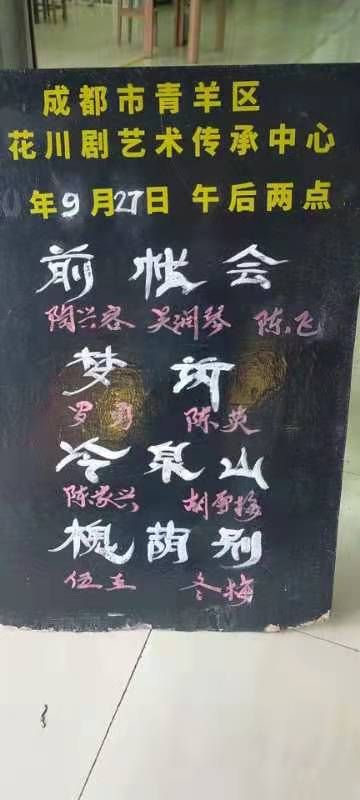 成都市青羊区
花川剧艺术传承中心
年9月27日 午后两点
前帐会
陶兴容 吴润琴 陈飞
梦诉
罗勇 陈英
冷泉山
陈家兴 胡雪梅
槐荫别
伍玉 冬梅